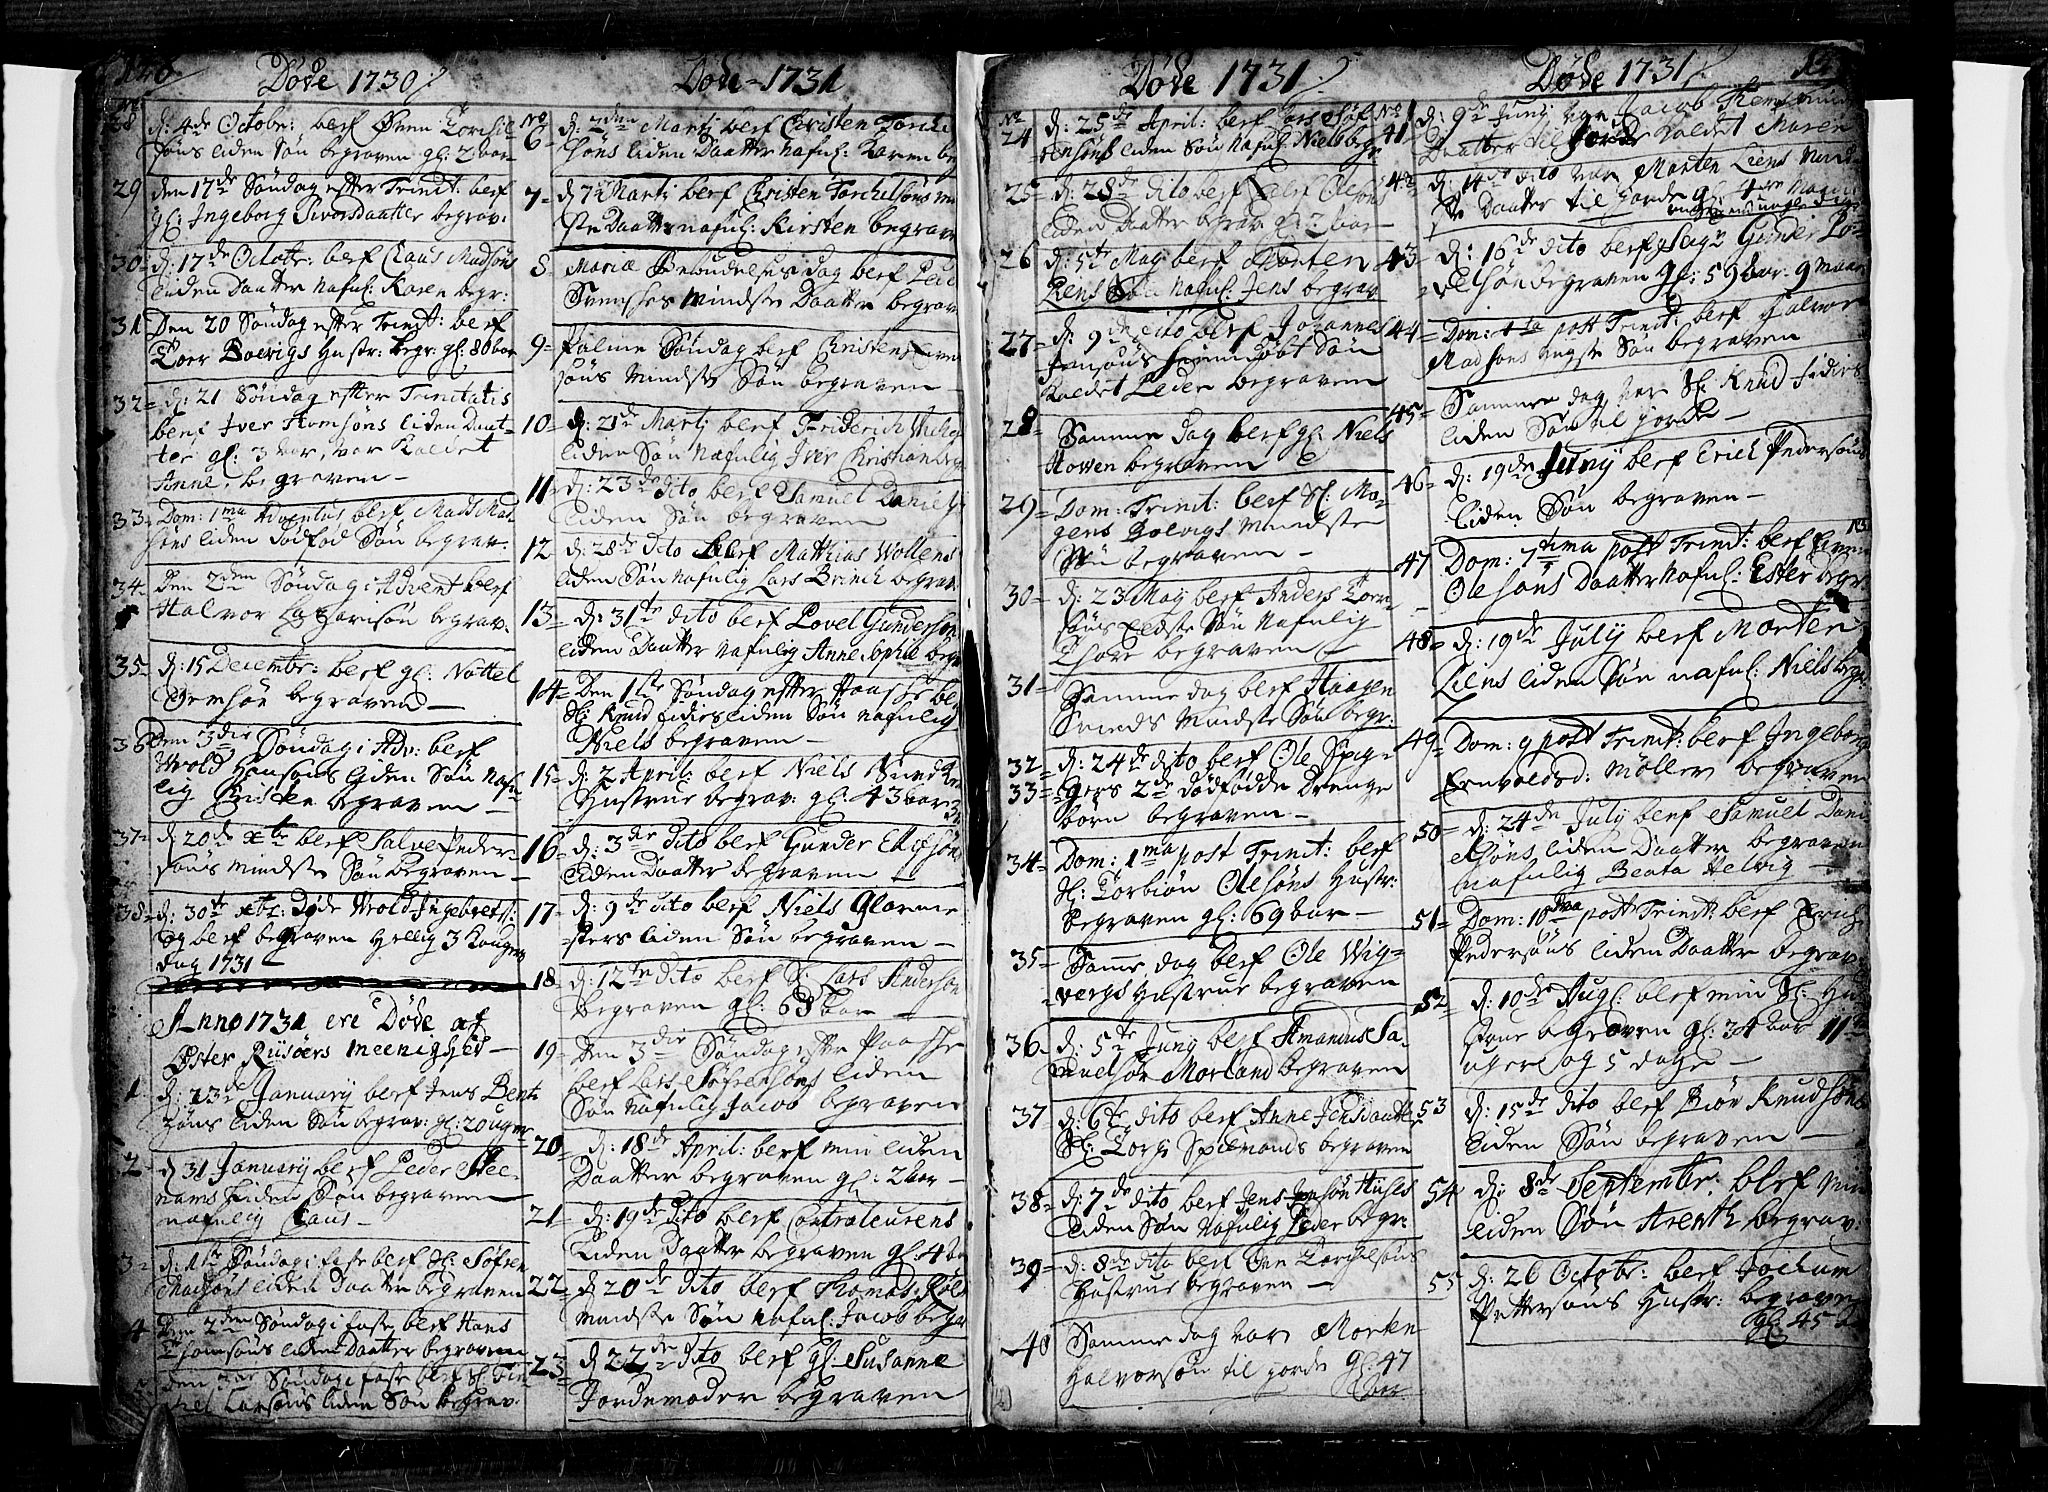 Døde 1730
No
28 d: 4de Octobr: blef Sven Torchil
søns liden Søn begraven gl: 2 aar
29 den 17de Søndag efter Trinit: blef
gl: Ingeborg Sivorsdaatter begrav:
30 d: 17de Octobr: blef Claus Madsøns
liden Daatter nafnl: Karen begr:
31 Den 20 Søndag efter Trinit: blef
Boevigs Hustr: begr: gl: 80 aar
32 d: 21 Søndag efter Trinitatis
blef Iver liden Daat-
ter gl: 3 aar, var kaldet
Anne, begraven
33 Dom: 1ma Adventus blef Mads Mad-
søns liden dødfød Søn begrav:
34 Den 2den Søndag i Advent blef
Halvor Zachorisøn begrav:
35 d: 15 Decembr: blef gl: Nottel
begraven
36 Den 3die Søndag i Adv: blef
Wrold Hansøns liden Søn nafn-
lig Christen begraven
37 d: 20de Xbr blef Salve Peder-
søns mindste Søn begraven
38 d: 30te Xbr: Døde Wrold Ingebretss:
og blef begraven Hellig 3 Konger
dag 1731
Anno 1731 ere Døde af
Øster Riisøers Meenighed
1 d: 23de January blef Jens Bent
søns liden Søn begrav: gl: 20 uger
2 d 31 January blef Peder Stee-
nams liden Søn begraven
nafnlig Claus
3 d: 1ste Søndag i faste blef Sl: Søfren
Madsøns liden Daatter begraven
4 Den 2den Søndag i faste blef Hans
Thomsøns liden Daatter begraven
5 Den 3die Søndag i faste blef Sl:
Larsøns liden Søn begrav:
Døde 1731
No
6 d: 2den Martj blef Christen Torchel
søns liden Daatter nafnl: Karen be
7 d 7de Martj blef Christen Torchelsøns mind
ste Daatter nafnl: Kirsten begrave
8 Mariæ Bebudelses dag blef Peder
Svenskes mindste Daatter begrav
9 Palme Søndag blef Christen
søns mindste Søn begraven
10 d: 21de Martj blef Friderich
liden Søn nafnlig Iver Christian begr
11 d: 23de dito blef Samuel Daniels
liden Søn begraven
12 d: 28de dito blef Matthias Wollens
liden Søn nafnlig Lars Brinch begrav:
13 d: 31te dito blef Povel Gundersøns
liden Daatter nafnlig Anne Sophie begr
14 Den 1ste Søndag efter Paaske be
Sl: Knud Fidiers liden Søn nafnlig
Niels begraven
15 d: 2 April: blef Niels
Hustrue begrav: gl: 43 aar
16 d: 3die dito blef Gunder Ellefsøns
liden Daatter begraven
17 d: 9de dito blef Niels Glarme
sters liden Søn begraven
18 d: 12te dito blef S: Lars Andersøn
begraven gl: 68 aar
19 Den 3die Søndag efter Paaske
blef Lars Søfrensøns liden
Søn nafnlig Jacob begraven
20 d: 18de April: blef min liden
Daatter begraven gl: 2 aar
21 d: 19de dito blef Controleurens
liden Daatter begraven gl: 4
22 d 20de dito blef Thomas
mindste Søn nafnl: Jacob begr
23 d 22de dito blef gl. Susanne
Jordemoder begraven
Døde 1731
No
24 d: 25de April: blef Lars Søf-
rensøns liden Søn nafnl: Niels begr
25 d: 28de dito blef Olsøns
liden Daatter begrav: gl: 2 aar
26 d: 5te Maj blef Morten
Liens Søn nafnl: Jens begrav
27 d: 9de dito blef Johannes
Jensøns hiemmedøbt Søn
kaldet Peder begraven
28 Samme dag blef gl: Niels
Howen begraven
29 Dom: Trinit: blef Sl: Mo-
gens Bolvigs mindste
Søn begraven
30 d: 23 Maj blef Anders
søns Eldste Søn nafnlig
Thore begraven
31 Samme dag blef Haagen
mindste Søn begr:
32 d: 24de dito blef Ole Spig-
33 gers 2de dødfødde Drenge
børn begraven
34 Dom: 1ma post Trinit: blef
Sl: Torbiøn Olesøns Hustr:
begraven gl: 69 aar
35 Samme dag blef Ole Wig-
vergs Hustrue begraven
36 d: 5te Juny blef Amandus Sa-
muelsøn Morland begraven
37 d: 6te dito blef Anne Jensdaatter
Sl: begraven
38 d: 7de dito blef Jens
liden Søn nafnlig Peder begr:
39 d: 8de dito blef Sven Torchelsøns
Hustrue begraven
40 Samme dag var Morten
Halvorsøn til jorde gl: 47
aar
Døde 1731
No
41 d: 9de Juny var Jacob
Daatter til Jorde kaldet Maren
42 d: 14de dito var Morten Liens Mind-
ste Daatter til Jorde gl: 4re
43 d: 16de dito blef Gunder Po-
velsøn begraven gl: 59 aar: 9 maan
44 Dom: 4ta post Trinit: blef Halvor
Madsøns yngste Søn begraven
45 Samme dag var Sl: Knud Fidiers
liden Søn til jorde
46 d: 19de Juny blef Erich Pedersøns
liden Søn begraven
47 Dom: 7tima post Trinit: blef Even
Olesøns Daatter nafnl: Ester begr
48 d: 19de July blef Morten
Liens liden Søn nafnl: Niels begr
49 Dom: 9 post Trinit: blef Ingeborg
Ernvoldsd: Møller begraven
50 d: 24de July blef Samuel Dani-
elsøns liden Daatter begraven
nafnlig Beata Helvig
51 Dom: 10ma post Trinit: blef Erich
Pedersøns liden Daatter begrav
52 d: 10de Aug: blef min Sl: Hu
strue begraven gl: 34 aar 11
uger og 5 dage
53 d: 15de dito blef Biør Knudsøns
liden Søn begraven
54 d: 8de Septembr: blef min
liden Søn Arenth begrav:
55 d: 26 Octobr: blef Jochum
Pettersøns Hustr: begraven
gl: 45